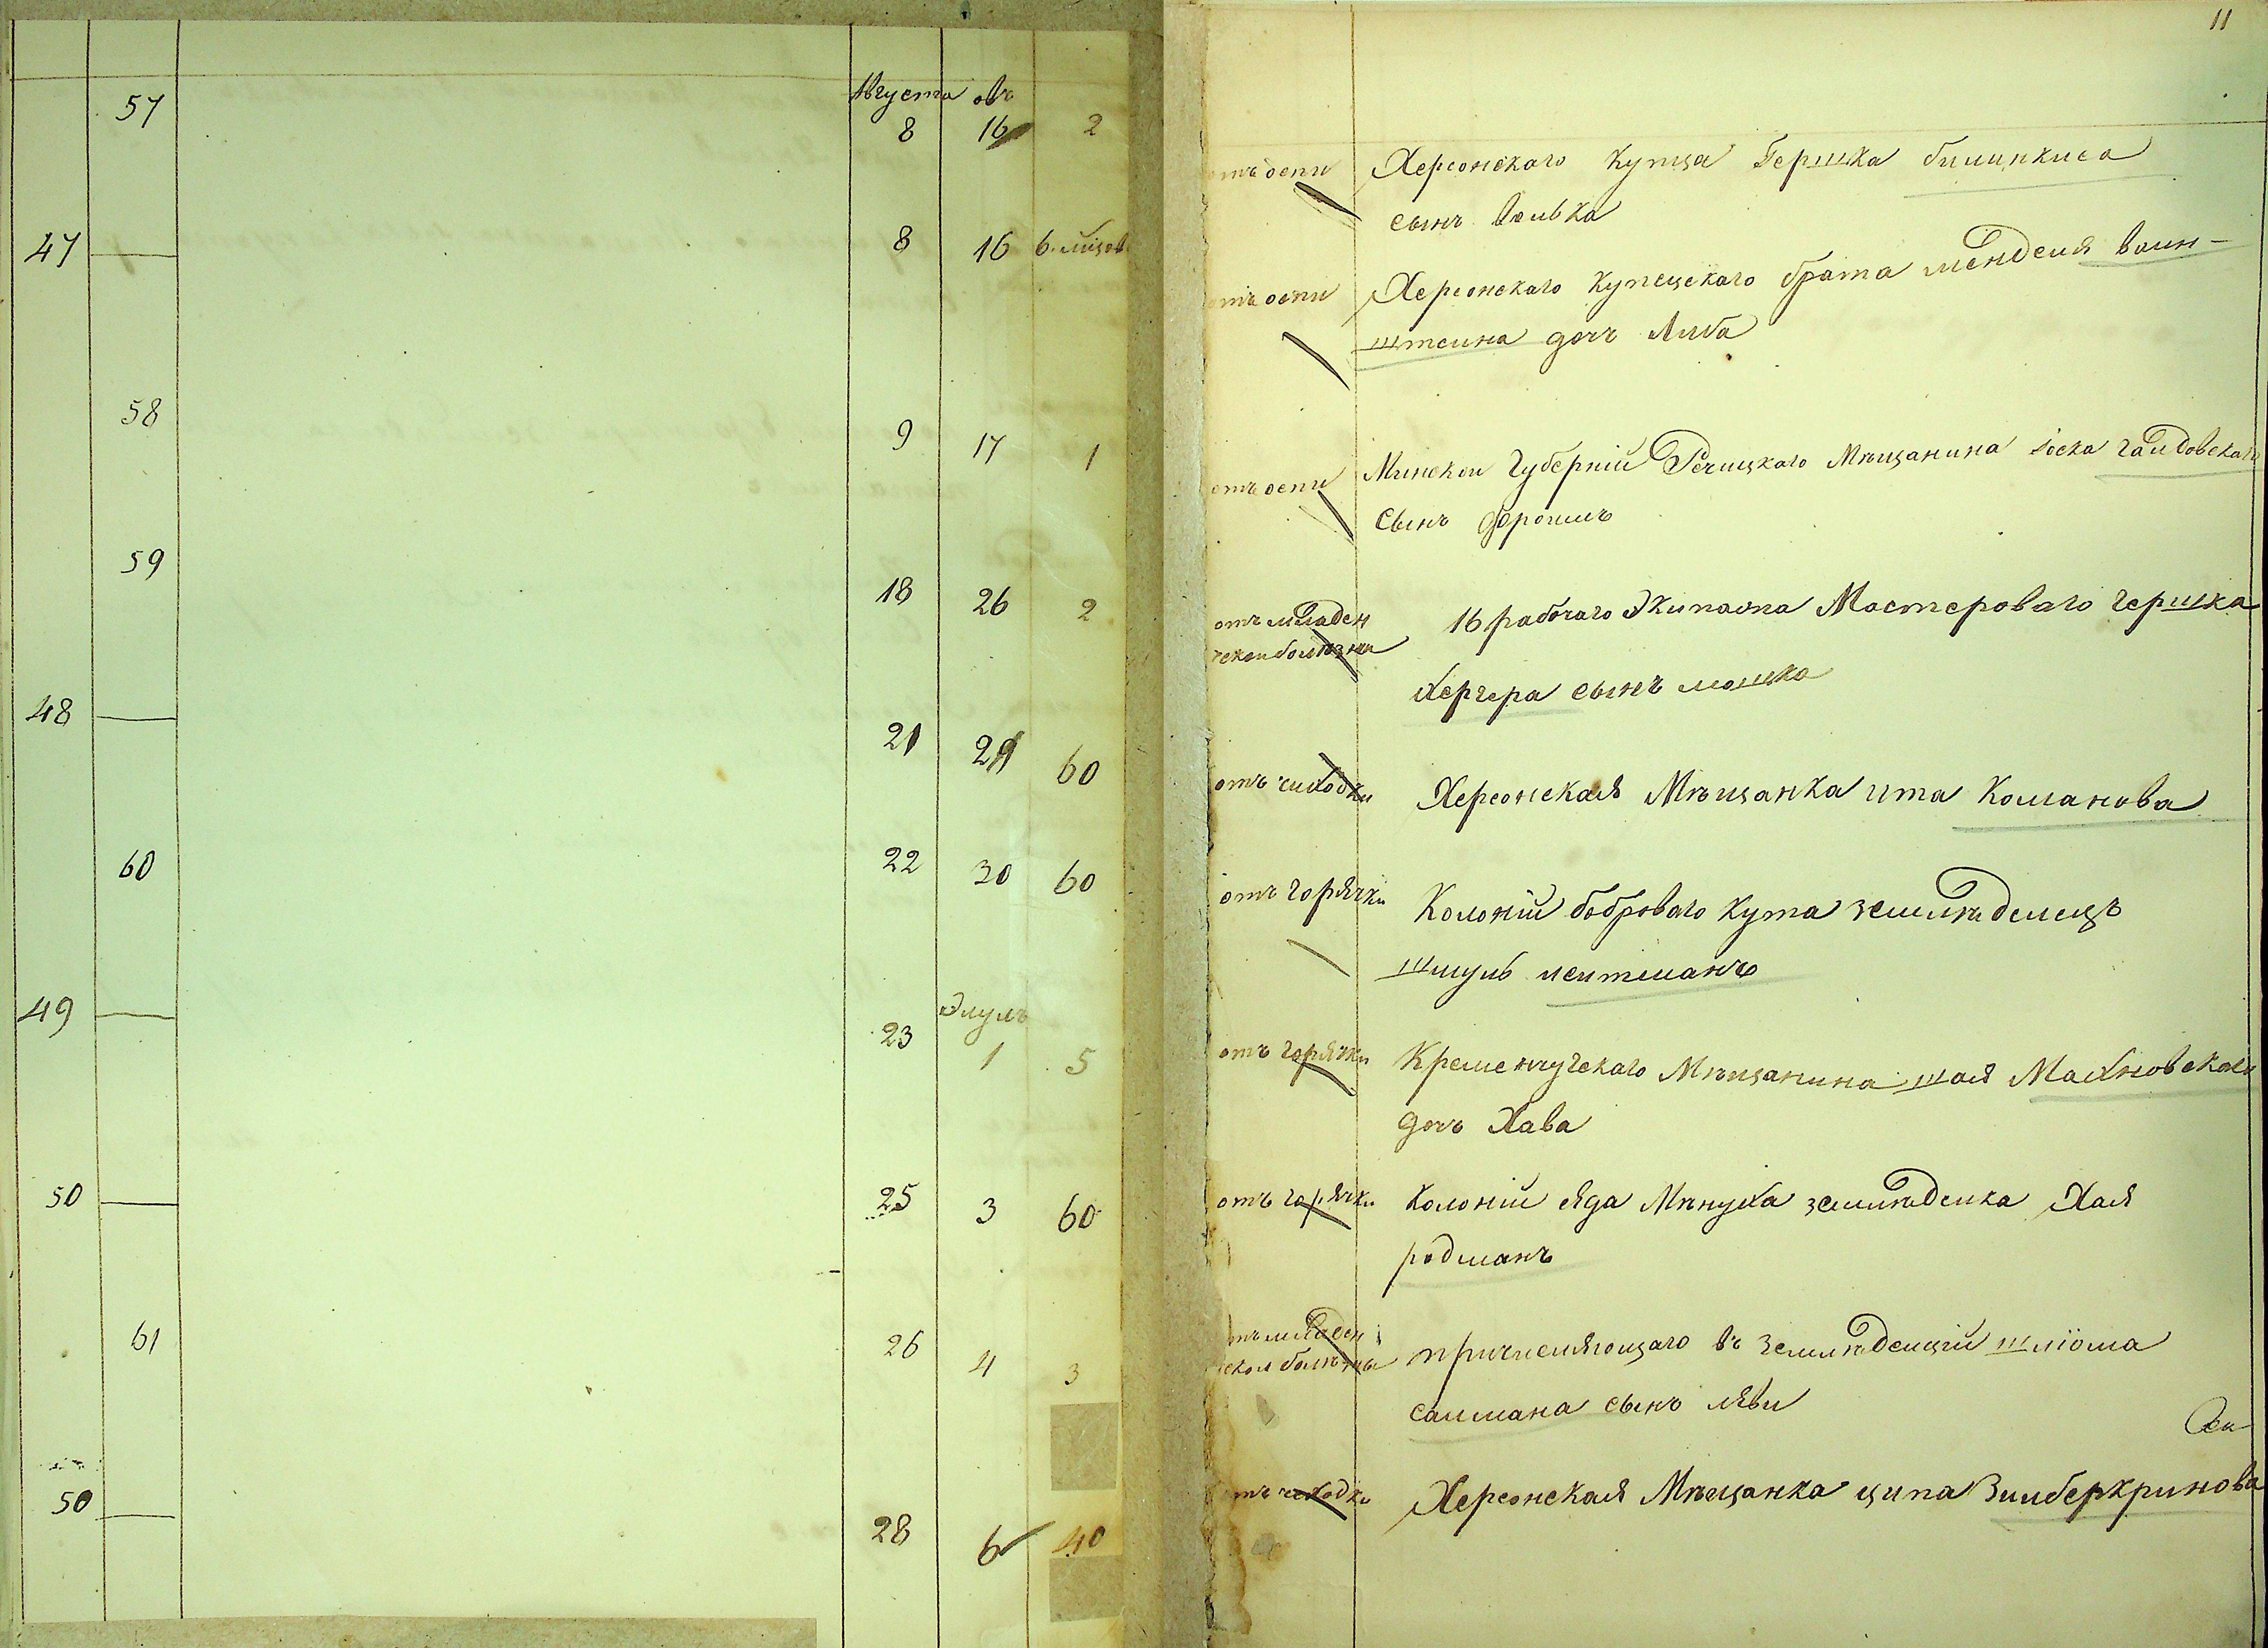 11
Августа овъ
57 8 16 2 отъ оспи Херсонскаго купца Гершка билинкиса
сынъ Волька
47 — 8 16 6. мѣсов отъ оспи Херсонскаго купецскаго брата менделя ваин-
штеина дочъ Либа
58 9 17 1 отъ оспи Минской Губерніи Речицкаго Мѣщанина іоска
сынъ
59 18 26 2 отъ младен
ческои болѣзни 16 рабочаго Экипажа Мастероваго гершка
Хергера сынъ мошко
48 — 21 29 60 отъ чиходки Херсонская Мѣщанка ита Команова
60 22 30 60 отъ горячки Колоніи боброваго кута земледелецъ
шмуль леитманъ
Элулъ
49 — 23 1 5 отъ горячки Кременчугскаго Мѣщанина шая Махновскаго
дочъ Хава
50 — 25 3 60 отъ горячки Колоніи яда Мѣнуха земледелка Хая
родманъ
61 26 4 3 отъ младен
ческои болѣзны причисляющаго въ земледелціи шліома
салмана сынъ лѣви
50 — 28 6 40 отъ чеходки Херсонская Мѣщанка ципа Зилберкринова